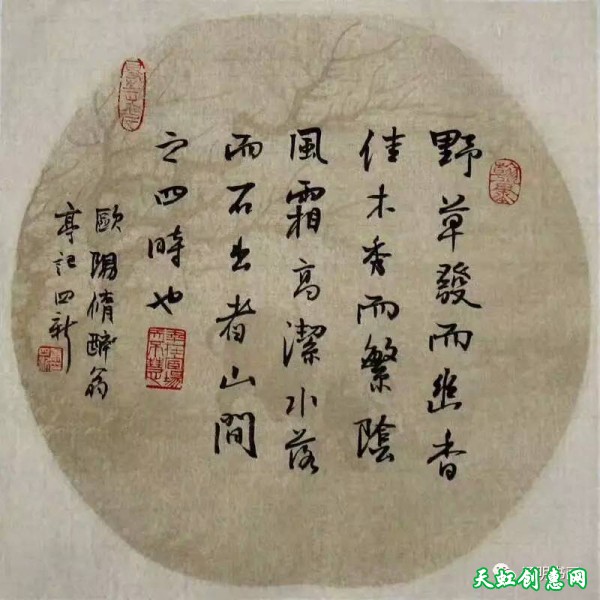 野草發而幽香
佳木秀而繁陰
風霜高潔水落
而石出者山間
之四時也
歐陽脩醉翁
亭記四新
天虹创惠网